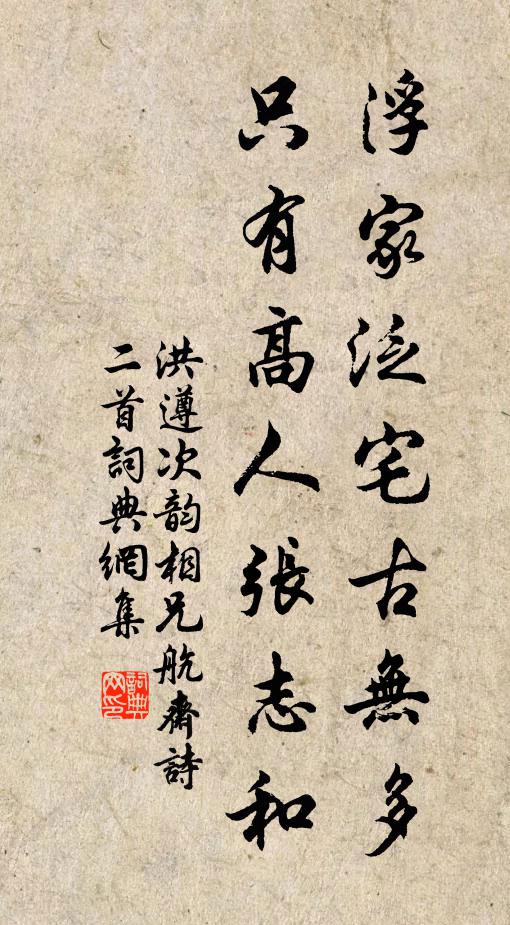 浮家泛宅古無多
只有高人張志和
洪遵次韵相兄舫齋詩
二首詞典網集
詞典網印